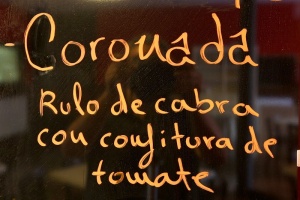 - Coronada
Rulo de cabra
con confitura de
tomate